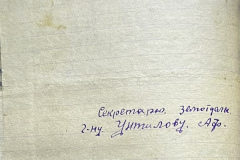 Секретарю Земотдела
г-ну Унтилову. Аф.